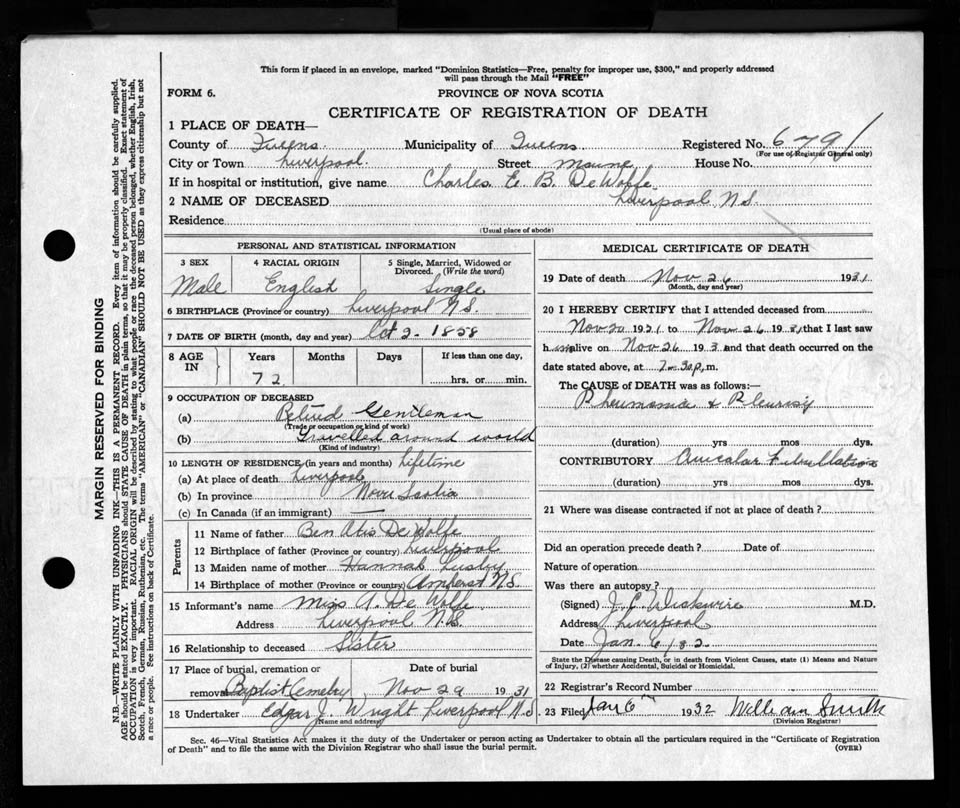 This form if placed in an envelope, marked "Dominion Statistics—Free, penalty for improper use, $300," and properly addressed
will pass through the Mail "FREE"
FORM 6.
PROVINCE OF NOVA SCOTIA
CERTIFICATE OF REGISTRATION OF DEATH
1 PLACE OF DEATH—
County of Queens Municipality of Queens Registered No. 6791
(For use of Registrar General only)
City or Town Liverpool Street House No.
If in hospital or institution, give name
2 NAME OF DECEASED Charles E. B. DeWolfe
Residence Liverpool N.S.
(Usual place of abode)
PERSONAL AND STATISTICAL INFORMATION
3 SEX Male
4 RACIAL ORIGIN English
5 Single, Married, Widowed or Divorced. (Write the word) Single
6 BIRTHPLACE (Province or country) Liverpool N.S.
7 DATE OF BIRTH (month, day and year) Oct 2. 1858
8 AGE IN Years 72 Months Days If less than one day, hrs. or min.
9 OCCUPATION OF DECEASED
(a) Retired Gentleman
(Trade or occupation or kind of work)
(b) Travelled around world
(Kind of industry)
10 LENGTH OF RESIDENCE (in years and months) Lifetime
(a) At place of death Liverpool
(b) In province Nova Scotia
(c) In Canada (if an immigrant) —
Parents
11 Name of father Ben Otis DeWolfe
12 Birthplace of father (Province or country) Liverpool
13 Maiden name of mother Hannah Lusby
14 Birthplace of mother (Province or country) Amherst N.S.
15 Informant's name Miss A. De Wolfe
Address Liverpool N.S.
16 Relationship to deceased Sister
17 Place of burial, cremation or removal Baptist Cemetry Date of burial Nov 29 1931
18 Undertaker Edgar J. Wright Liverpool N.S
(Name and address)
MEDICAL CERTIFICATE OF DEATH
19 Date of death Nov. 26 1931
(Month, day and year)
20 I HEREBY CERTIFY that I attended deceased from
Nov 20 1931 to Nov 26 193, that I last saw
h im alive on Nov 26 193 and that death occurred on the
date stated above, at 7-30 p.m.
The CAUSE of DEATH was as follows:—
Pneumonia & Pleurisy
(duration) yrs mos dys.
CONTRIBUTORY Auricular Fibrillation
(duration) yrs mos dys.
21 Where was disease contracted if not at place of death?
Did an operation precede death? Date of
Nature of operation
Was there an autopsy?
(Signed) J. C. Wickwire M.D.
Address Liverpool
Date Jan. 6/32.
State the Disease causing Death, or in death from Violent Causes, state (1) Means and Nature
of Injury, (2) whether Accidental, Suicidal or Homicidal.
22 Registrar's Record Number
23 Filed Jan 6 1932 William Smith
(Division Registrar)
Sec. 46—Vital Statistics Act makes it the duty of the Undertaker or person acting as Undertaker to obtain all the particulars required in the "Certificate of Registration
of Death" and to file the same with the Division Registrar who shall issue the burial permit.
(OVER)
MARGIN RESERVED FOR BINDING
N.B.—WRITE PLAINLY WITH UNFADING INK—THIS IS A PERMANENT RECORD. Every item of information should be carefully supplied.
AGE should be stated EXACTLY. PHYSICIANS should STATE CAUSE OF DEATH in plain terms, so that it may be properly classified. Exact statement of
OCCUPATION is very important. RACIAL ORIGIN will be described by stating to what people or race the deceased person belonged, whether English, Irish,
Scotch, French, German, Russian, Ruthenian, etc. The terms "AMERICAN" or "CANADIAN" SHOULD NOT BE USED as they express citizenship but not
a race or people. See instructions on back of Certificate.